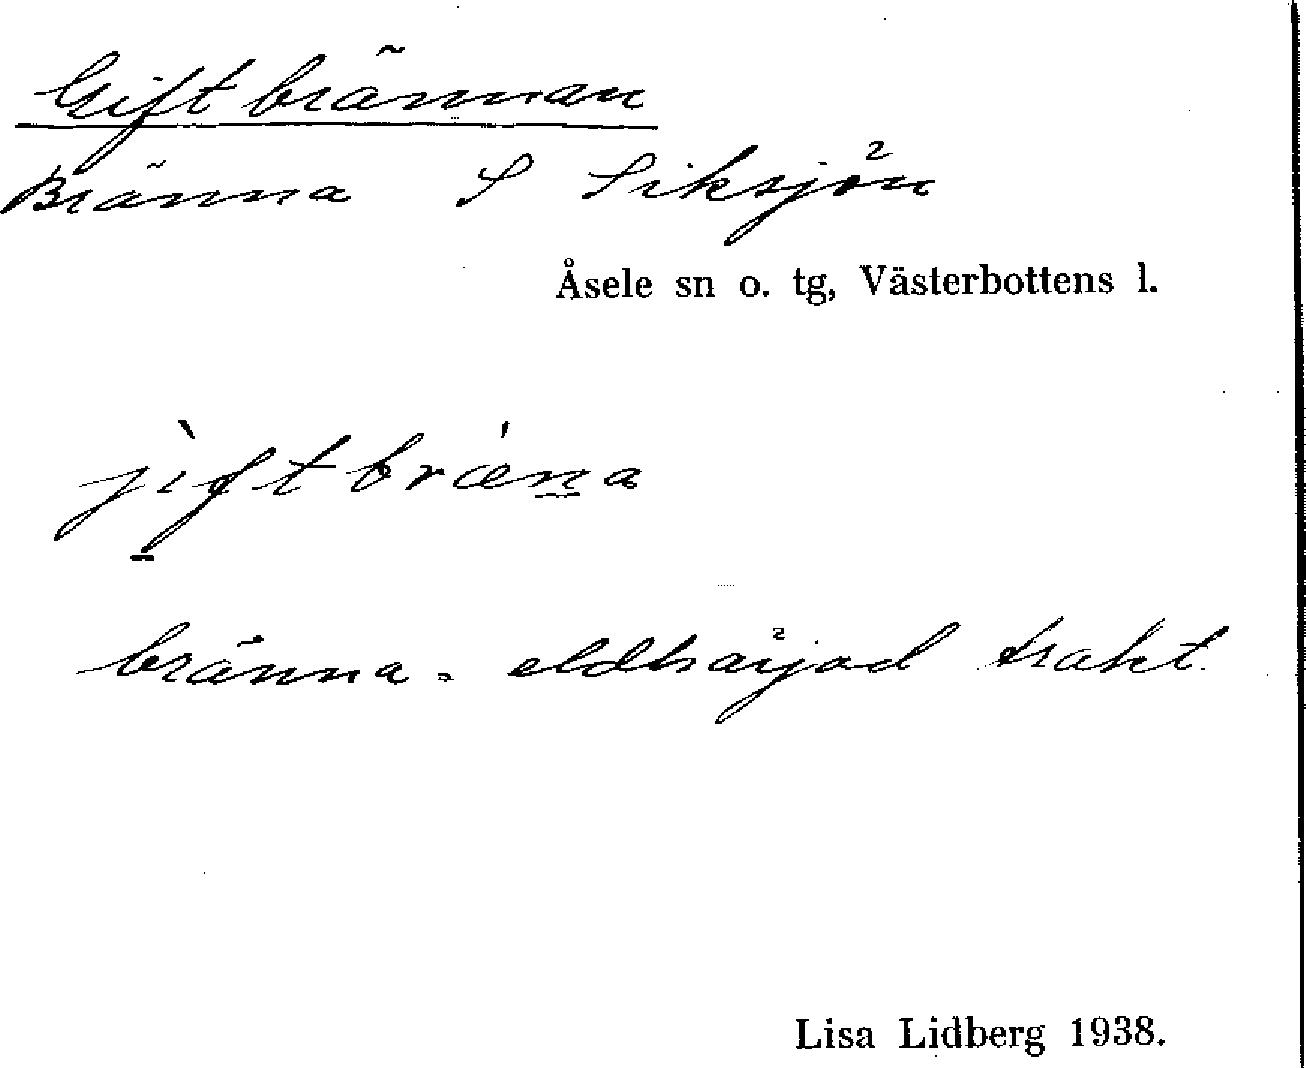 Giftbrännan
Bränna S Siksjön
Åsele sn o. tg, Västerbottens l.
jìf̱tbrǽṉa
bränna = eldhärjad trakt.
Lisa Lidberg 1938.